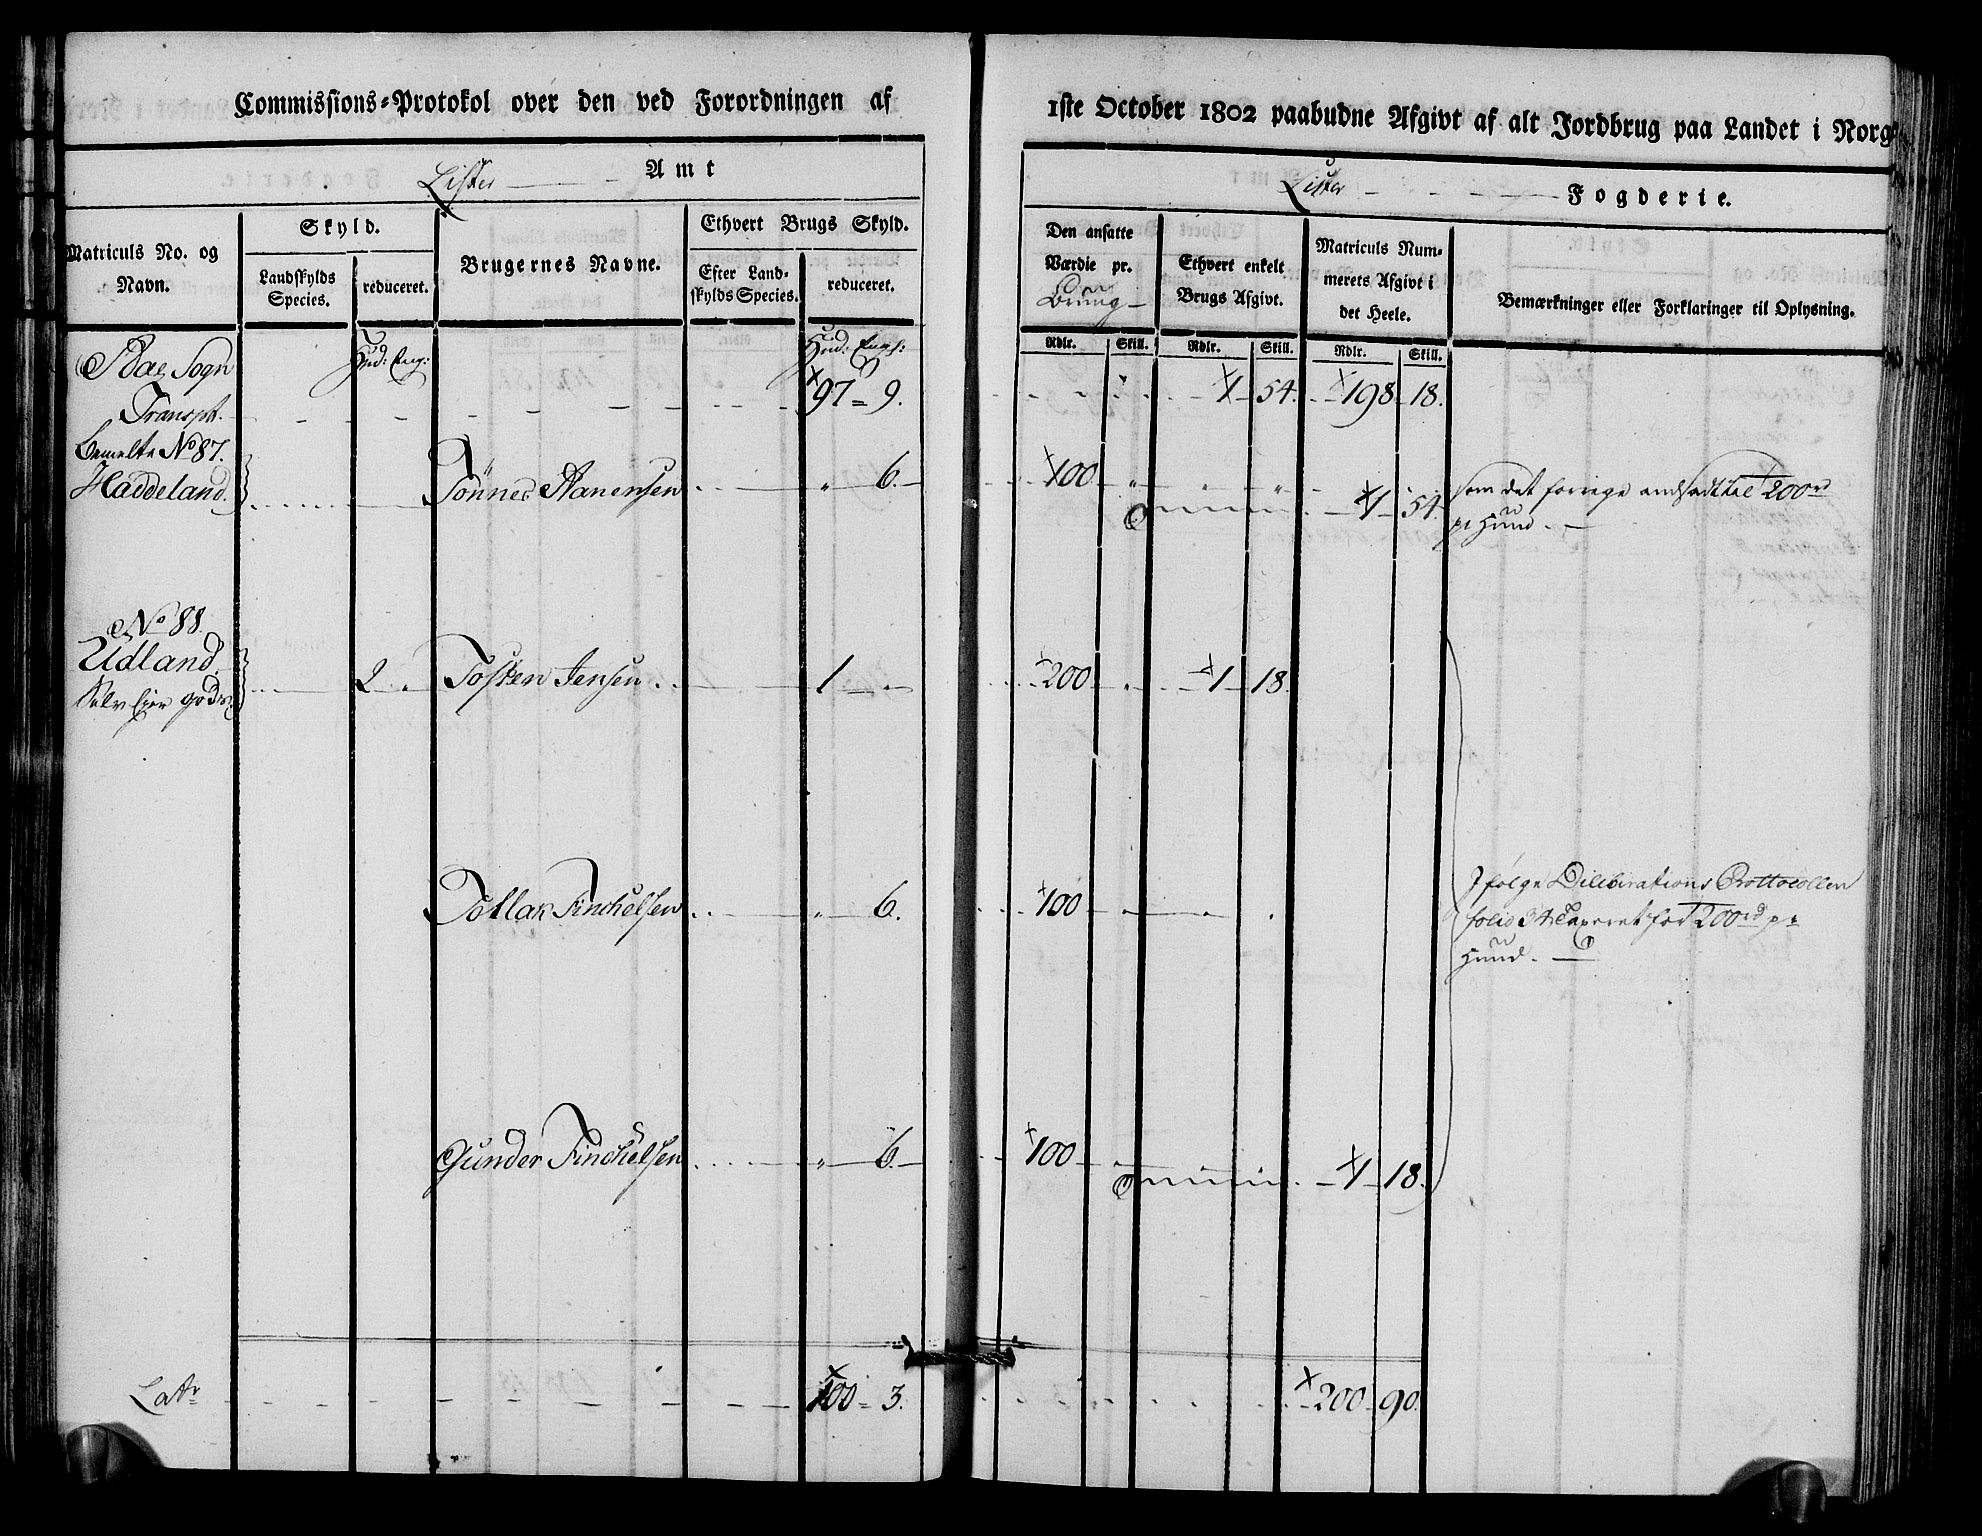 Commissions-Protokol over den ved Forordningen af 1ste October 1802 paabudne Afgivt af alt Jordbrug paa Landet i Norge
Lister Amt
Lister Fogderie.
Matriculs No. og Navn.
Skyld.
Landskylds Species.
reduceret.
Brugernes Navne.
Ethvert Brugs Skyld.
Efter Landskylds Species.
reduceret.
Den ansatte Værdie pr. Brüug
Ethvert enkelt Brugs Afgivt.
Matriculs Nummerets Afgivt i det Heele.
Bemærkninger eller Forklaringer til Oplysning.
Rdlr. Skill. Rdlr. Skill. Rdlr. Skill.
Sogn Hud: Eng: Hud: Eng:
Transpt. 97 = 9. 1 54. 198 18.
bemelte No 87.
Haddeland. Tönnes Aanensen " 6. 100 " " " 1 54. som det forrige andsadt til 200 rd
pr Huud.
No 88.
Udland, 2 Tosten Jensen 1 200 1 18.
Selv Eier gods
Tollak Finchelsen " 6. 100 J følge Deliberations Prottocollen
folio 34 Taxeret for 200 rd pr
Huud.
Gunder Finchelsen " 6. 100 1 18.
Latr 100 = 3. 200 90.